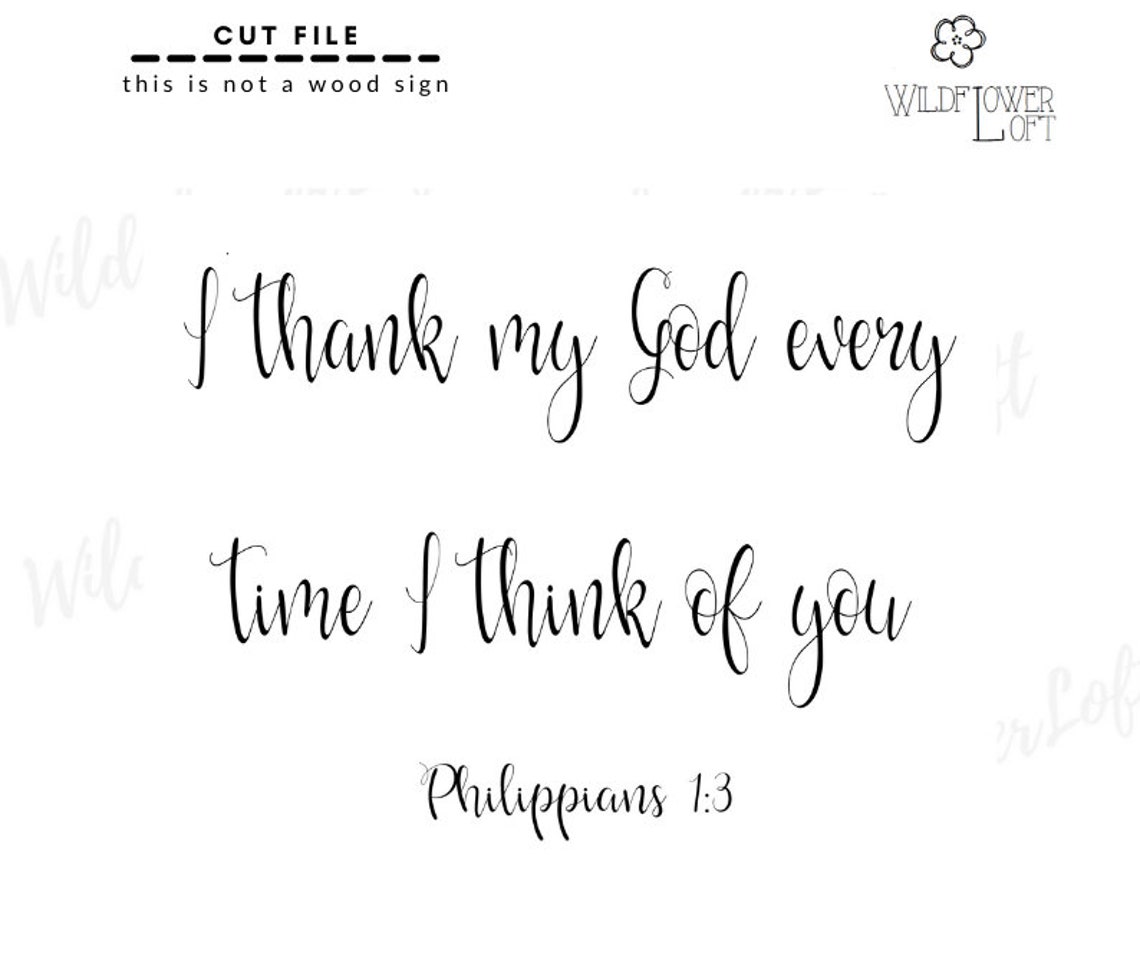 CUT FILE
this is not a wood sign
WILDFLOWER
LOFT
Wild
I thank my God every
time I think of you
Philippians 1:3